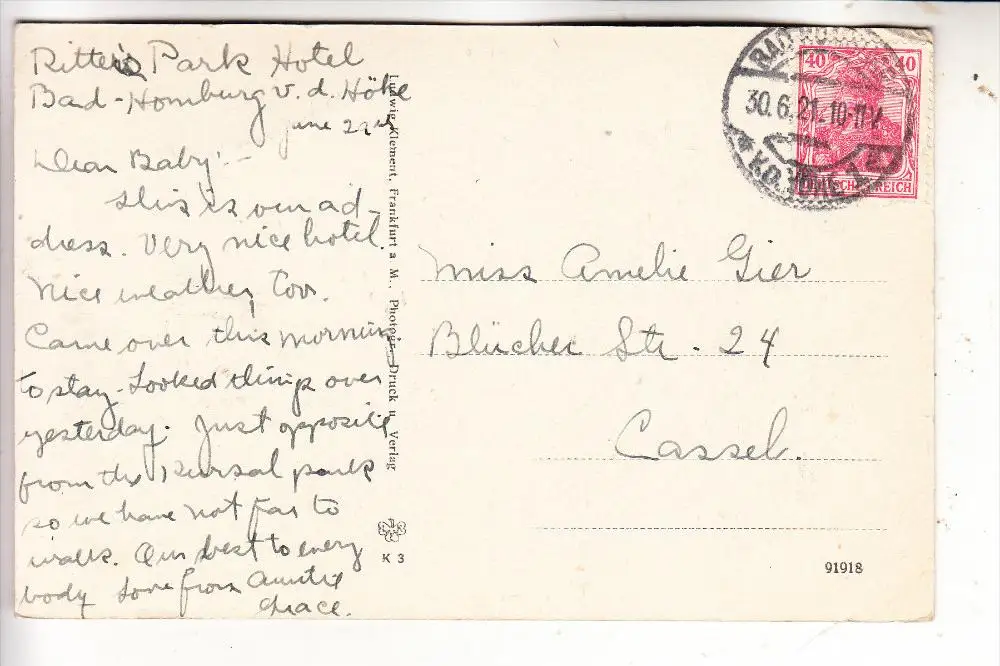 Ritter's Park Hotel
Bad-Homburg v. d. Höhe
June 29th
Dear Baby:—
This is our ad-
dress. Very nice hotel.
Nice weather, too.
Came over this morning
to stay. Looked things over
yesterday. Just opposite
from the Kursal park
so we have not far to
walk. Our best to every
body Love from Auntie
Grace.
Ludwig Klement, Frankfurt a M., Photogr. Druck u. Verlag
K 3
BAD HOMBURG
30.6.21.10-11V
v.d. HÖHE 1
40 40
DEUTSCHES REICH
Miss Amelie Gier
Blücher Str. 24
Cassel.
91918